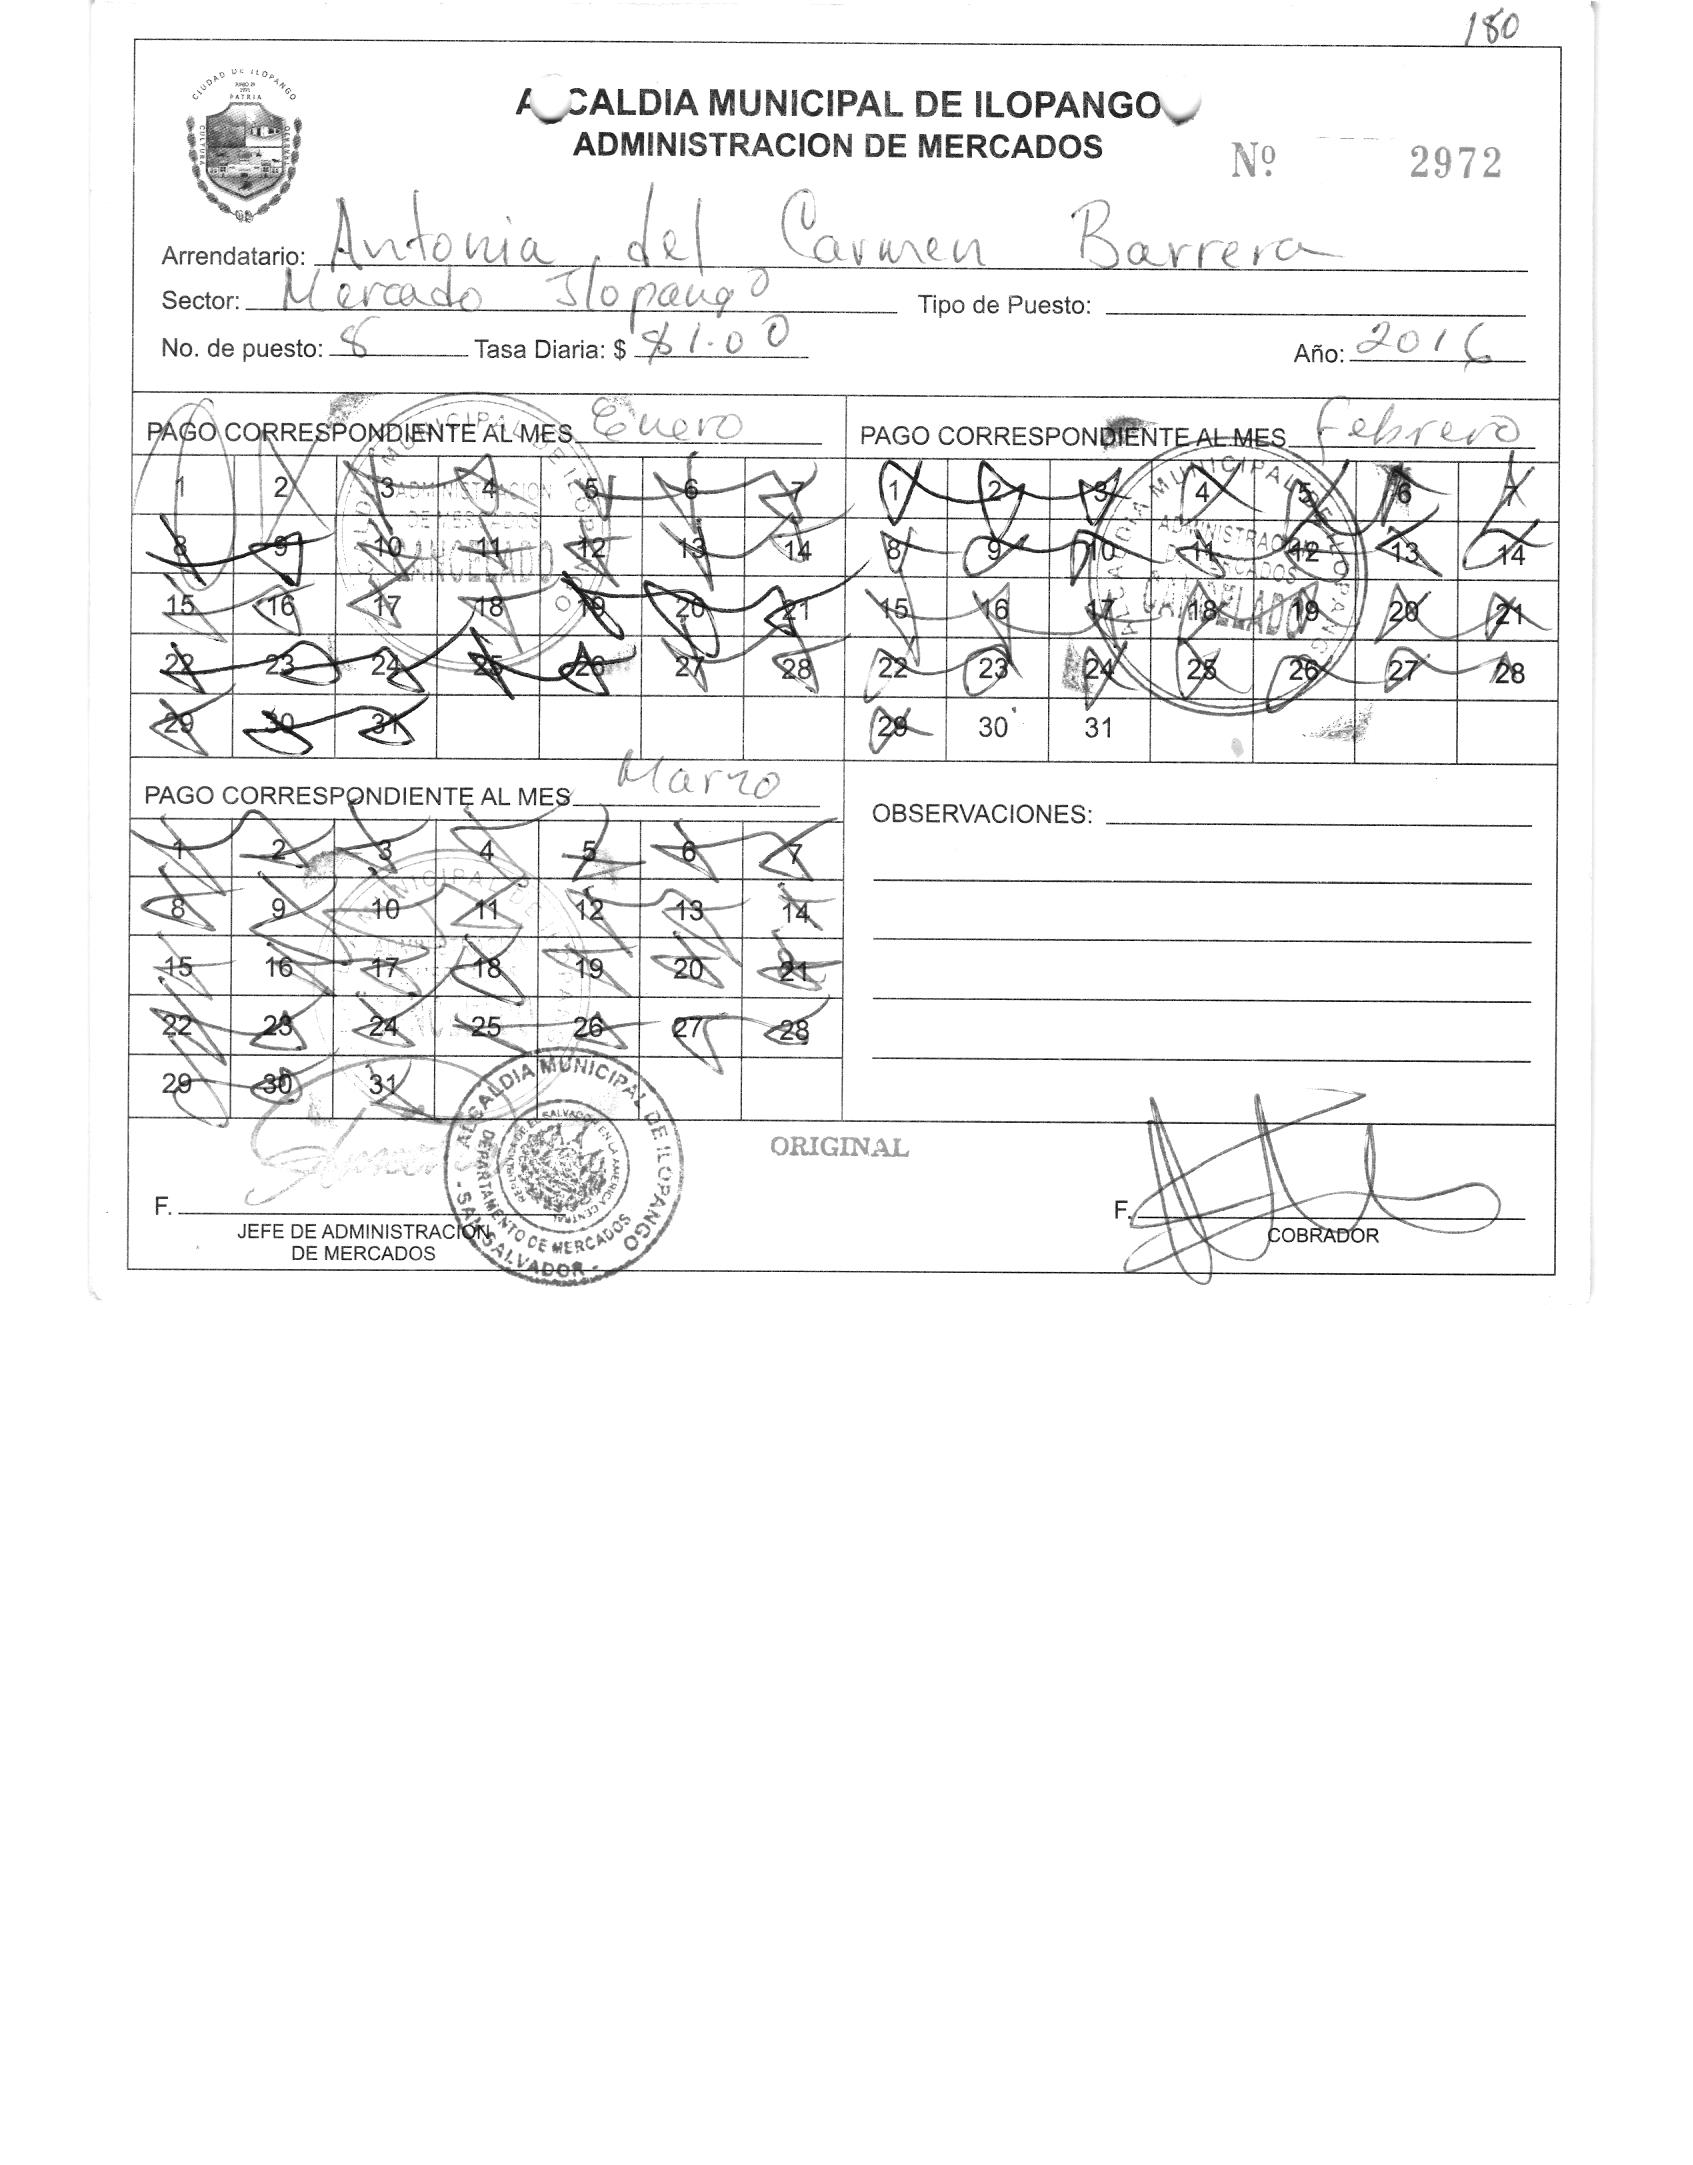 180
CIUDAD DE ILOPANGO
PATRIA
CULTURA
ALCALDIA MUNICIPAL DE ILOPANGO
ADMINISTRACION DE MERCADOS
Nº 2972
Arrendatario: Antonia del Carmen Barrera
Sector: Mercado Ilopango Tipo de Puesto:
No. de puesto: 8 Tasa Diaria: $ $1.00 Año: 2016
PAGO CORRESPONDIENTE AL MES Enero
1 2 3 4 5 6 7
8 9 10 11 12 13 14
15 16 17 18 19 20 21
22 23 24 25 26 27 28
29 30 31
ADMINISTRACION
DE MERCADOS
CANCELADO
PAGO CORRESPONDIENTE AL MES Febrero
1 2 3 4 5 6 7
8 9 10 11 12 13 14
15 16 17 18 19 20 21
22 23 24 25 26 27 28
29 30 31
ALCALDIA MUNICIPAL DE ILOPANGO
ADMINISTRACION
DE MERCADOS
CANCELADO
PAGO CORRESPONDIENTE AL MES Marzo
1 2 3 4 5 6 7
8 9 10 11 12 13 14
15 16 17 18 19 20 21
22 23 24 25 26 27 28
29 30 31
OBSERVACIONES:
ORIGINAL
F.
JEFE DE ADMINISTRACION
DE MERCADOS
ALCALDIA MUNICIPAL DE ILOPANGO
DEPARTAMENTO DE MERCADOS
REPUBLICA DE EL SALVADOR EN LA AMERICA CENTRAL
- SAN SALVADOR -
F.
COBRADOR